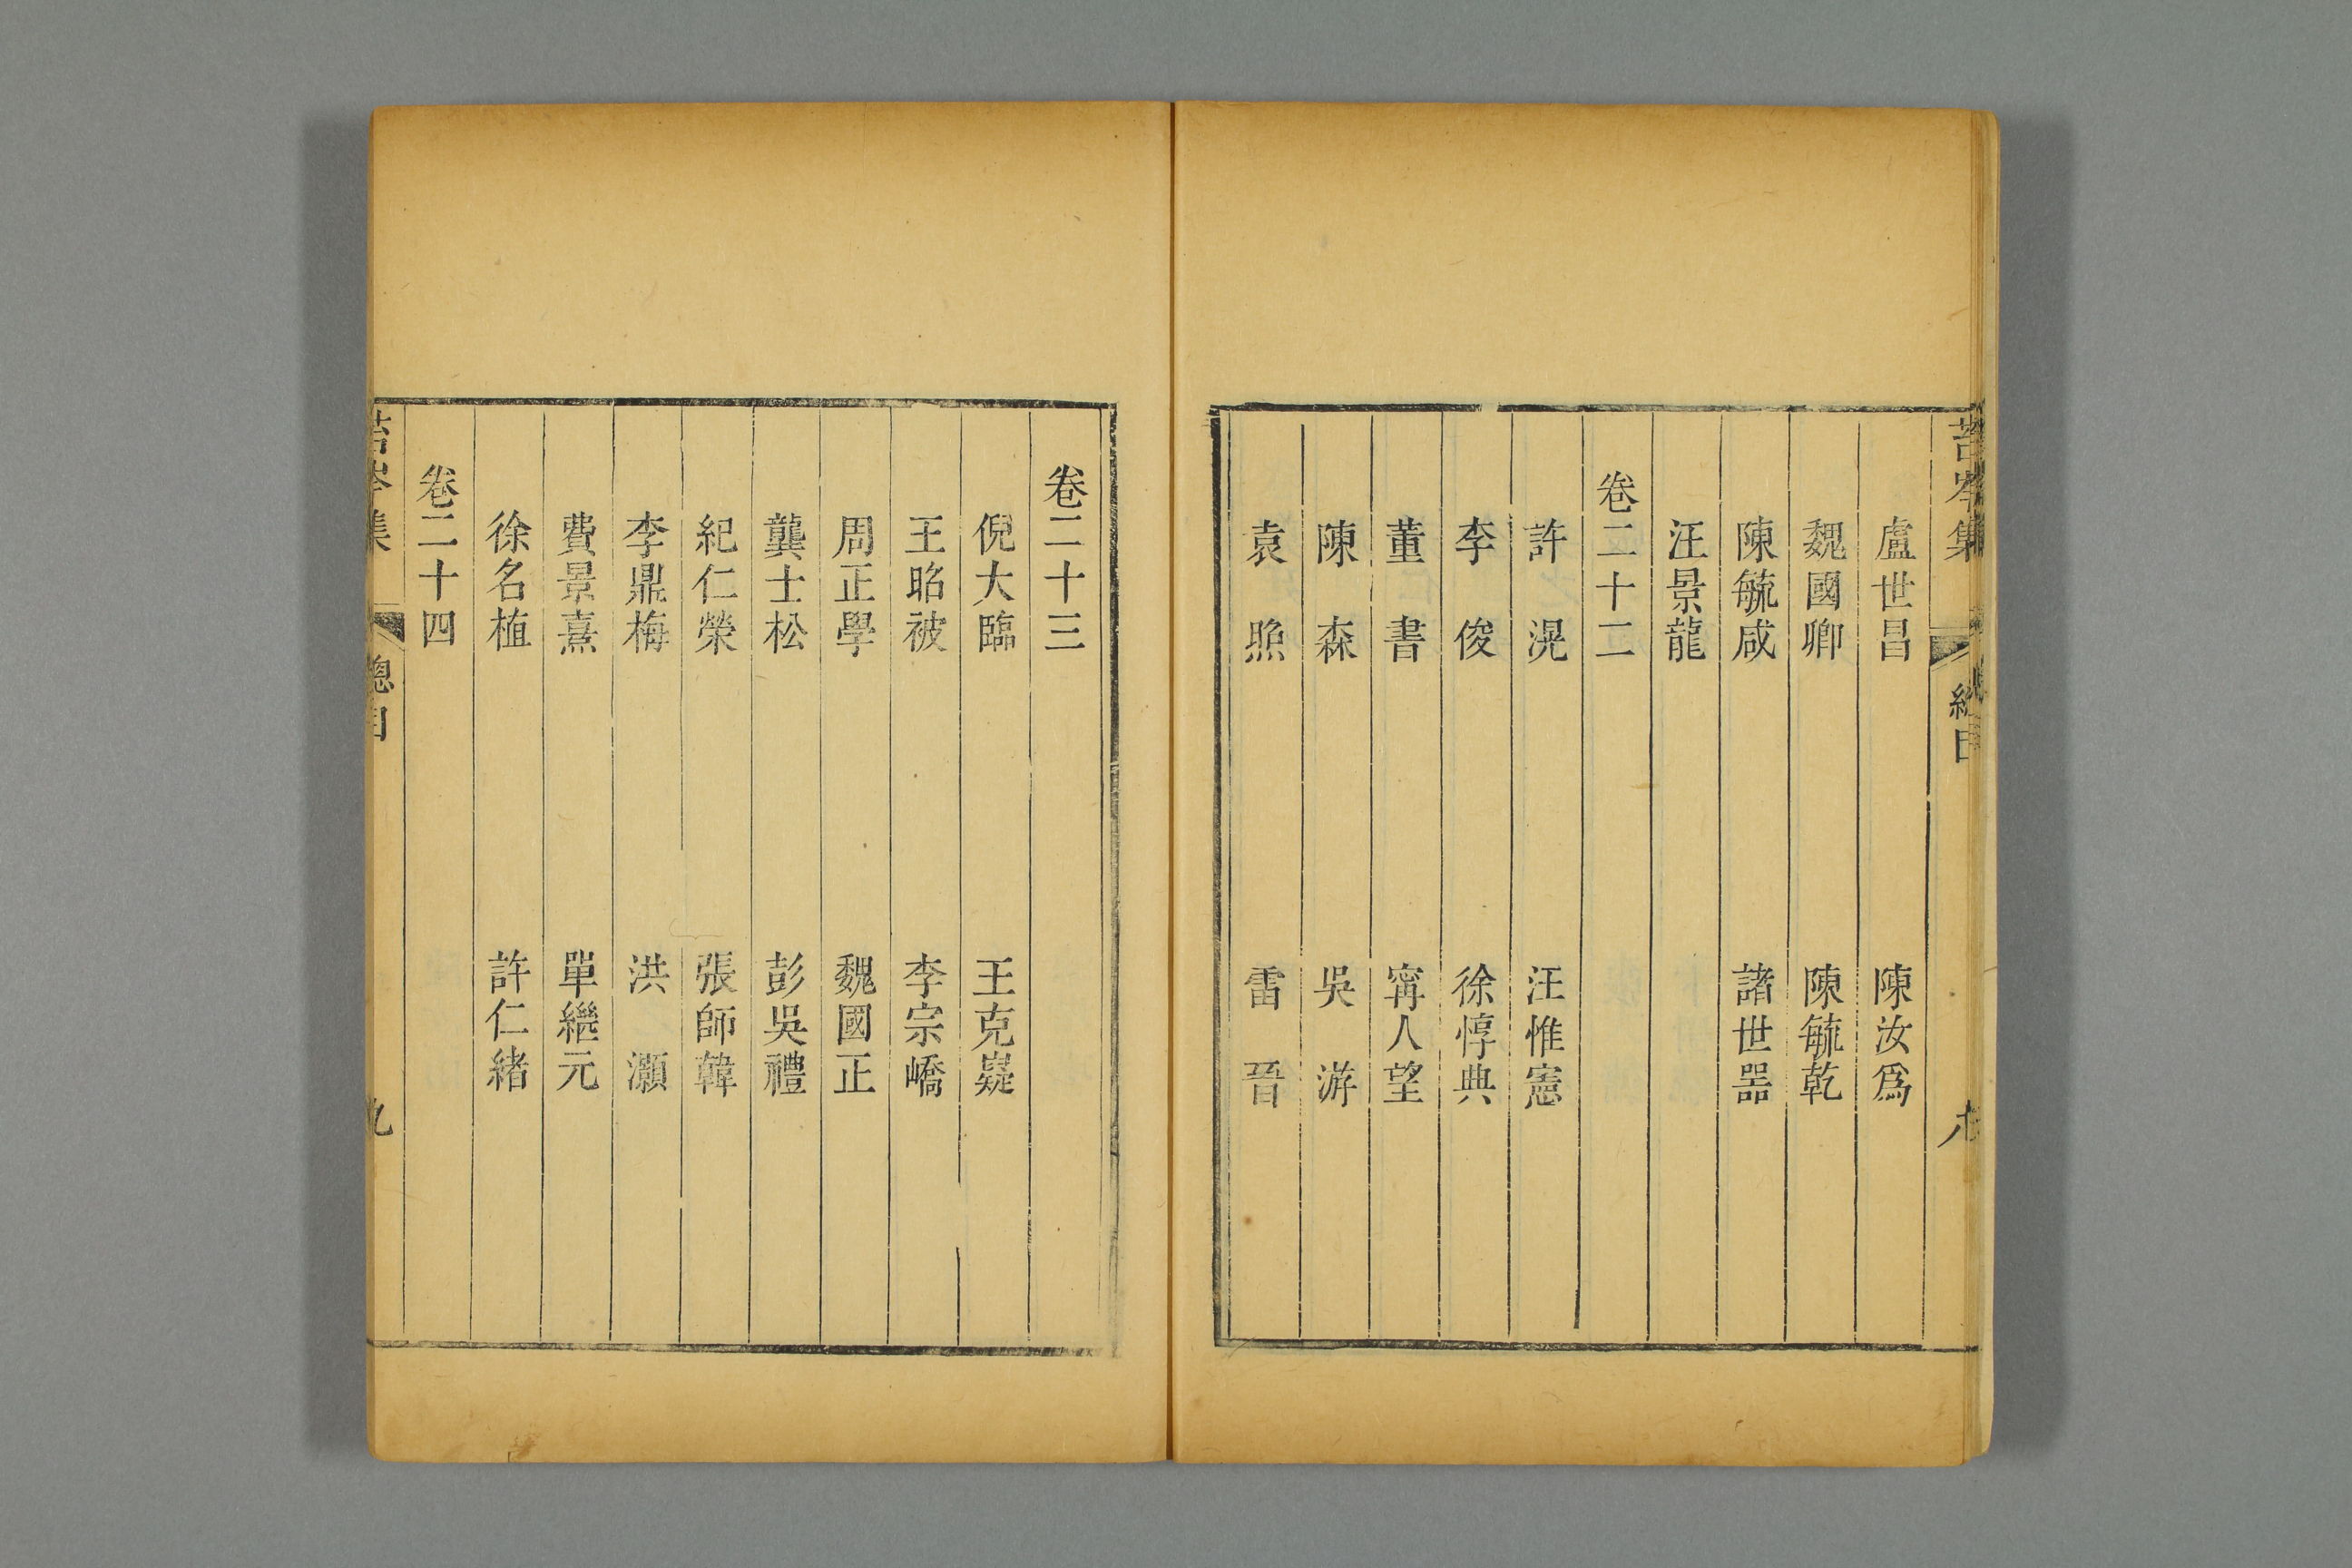 苔岑集 總目
盧世昌 陳汝為
魏國卿 陳毓乾
陳毓咸 諸世器
汪景龍
卷二十二
許滉 汪惟憲
李俊 徐惇典
董書 甯人望
陳森 吳游
袁煦 雷晉
卷二十三
倪大臨 王克嶷
王昭被 李宗嶠
周正學 魏國正
龔士松 彭吳禮
紀仁榮 張師韓
李鼎梅 洪灝
費景熹 單繼元
徐名植 許仁緒
卷二十四
苔岑集 總目 九